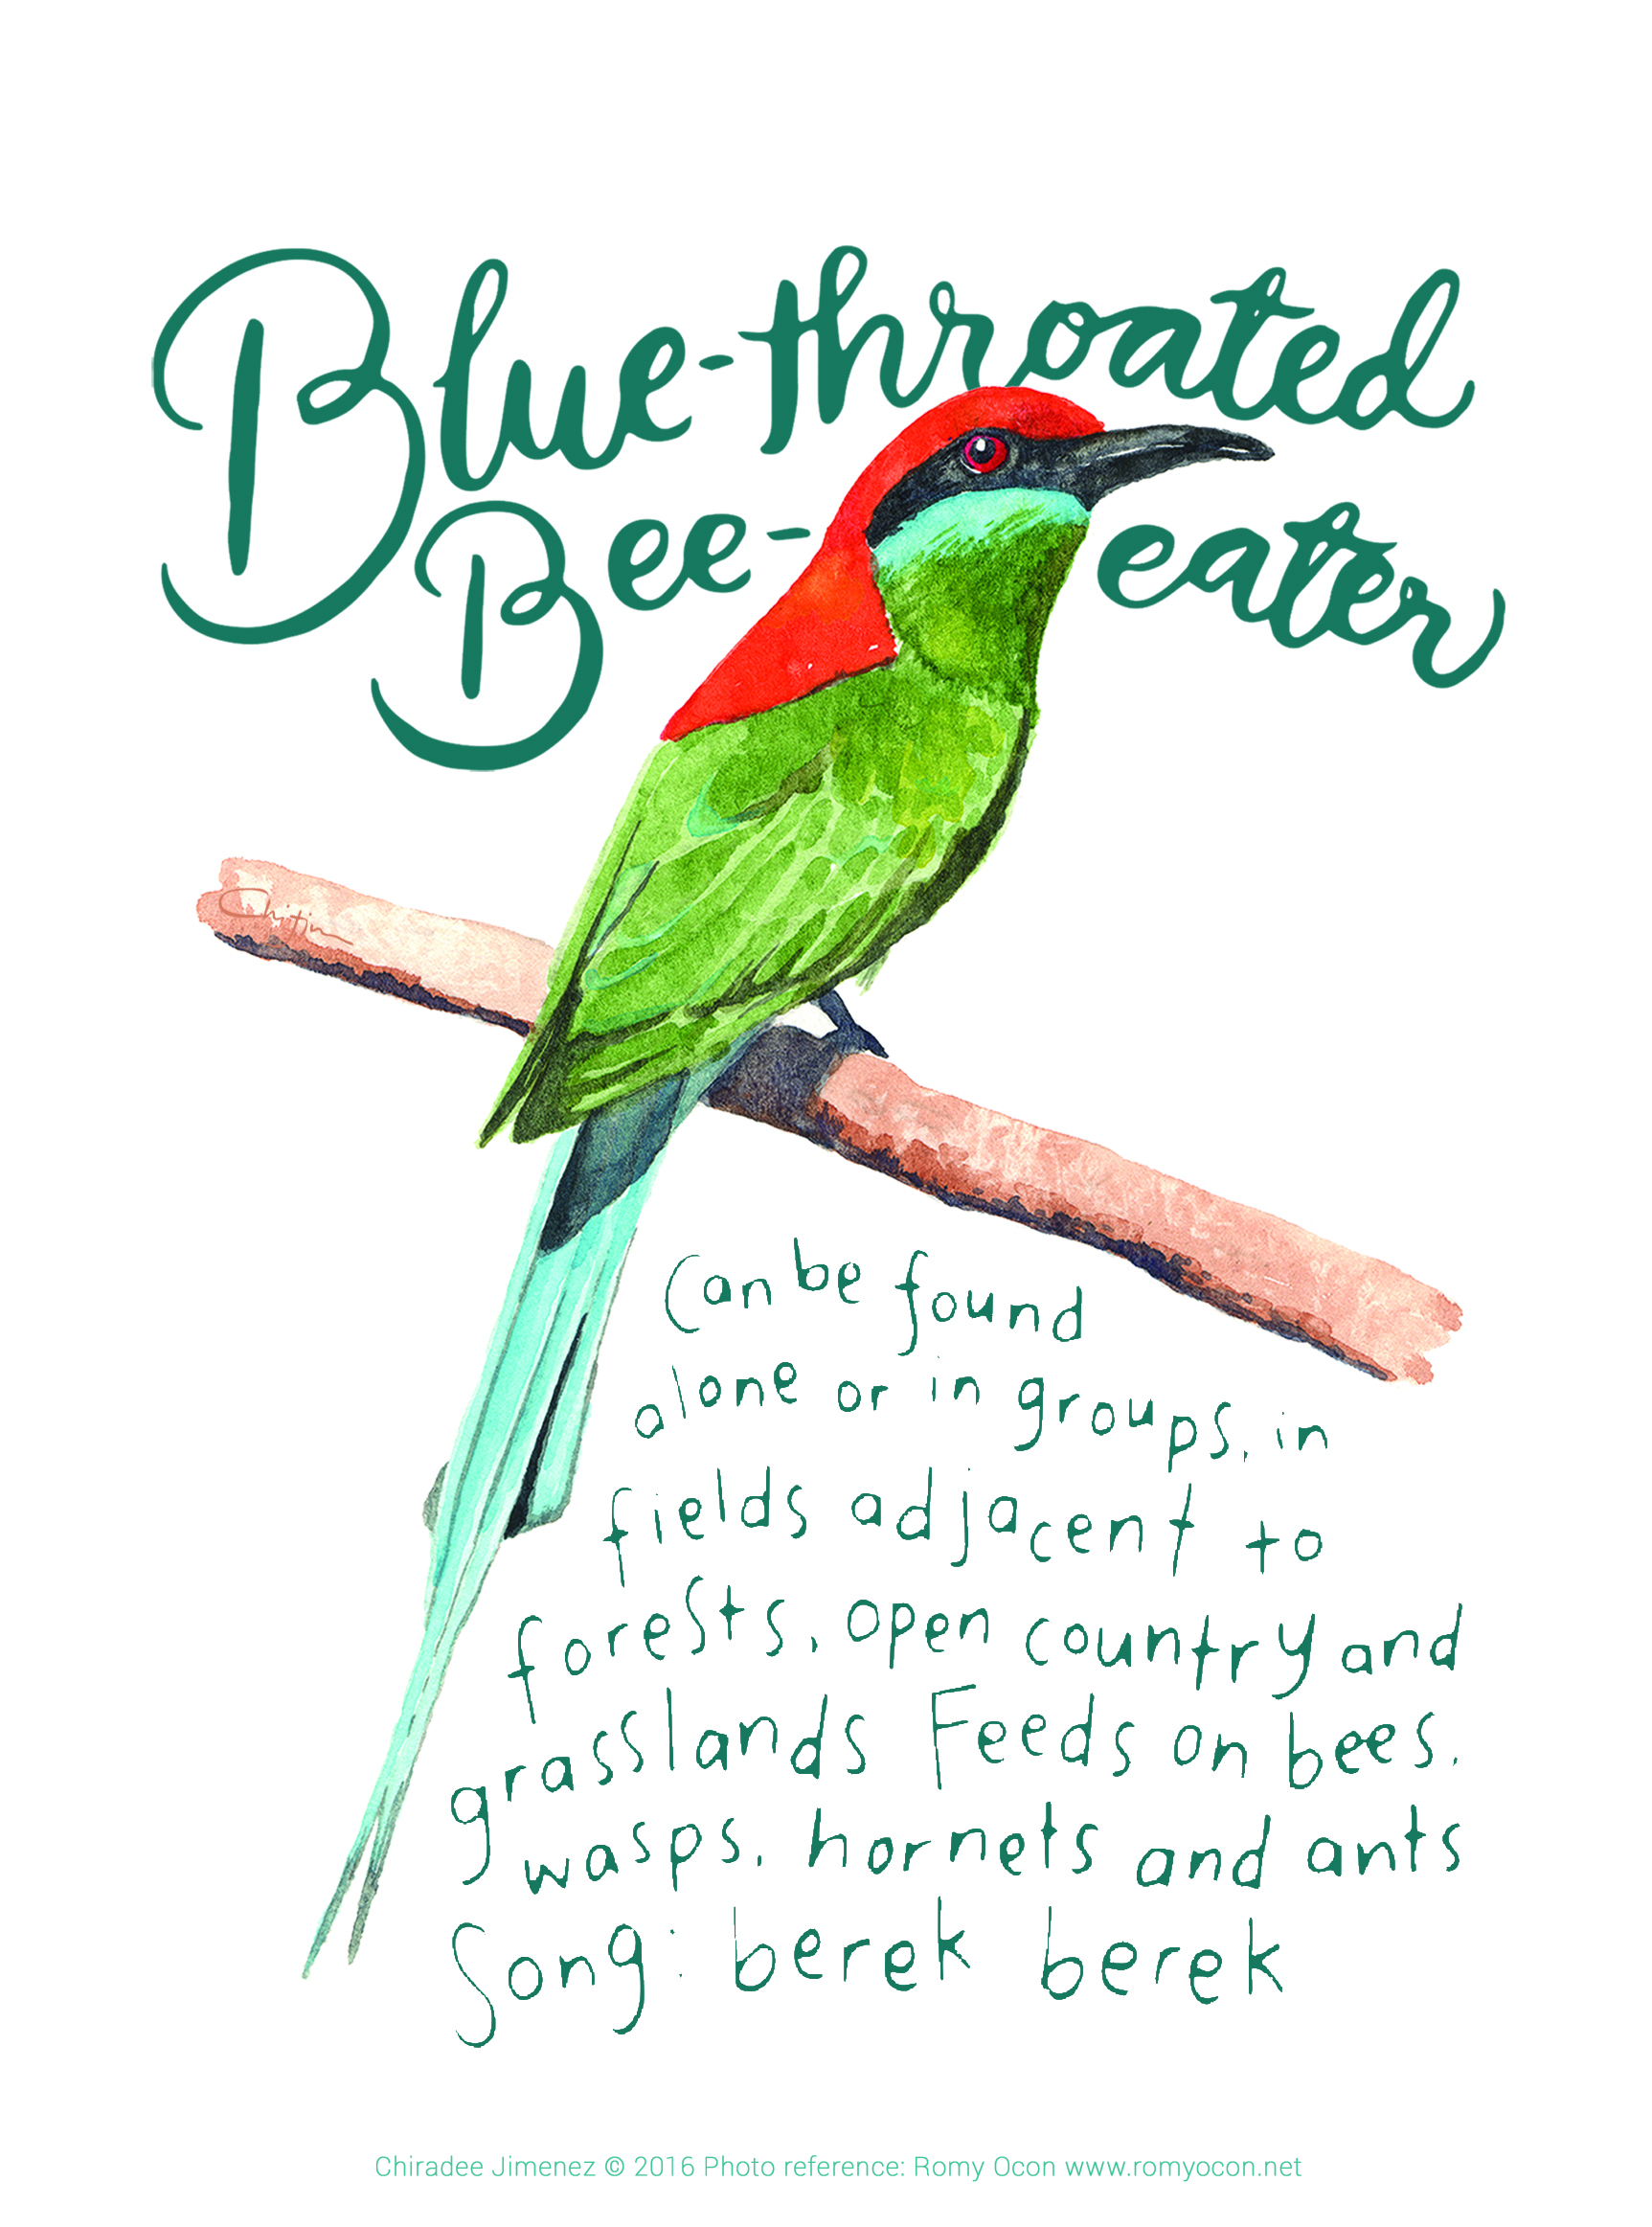 Blue-throated
Bee-eater
Chitjim
Can be found
alone or in groups, in
fields adjacent to
forests, open country and
grasslands Feeds on bees,
wasps, hornets and ants
Song: berek berek
Chiradee Jimenez © 2016 Photo reference: Romy Ocon www.romyocon.net